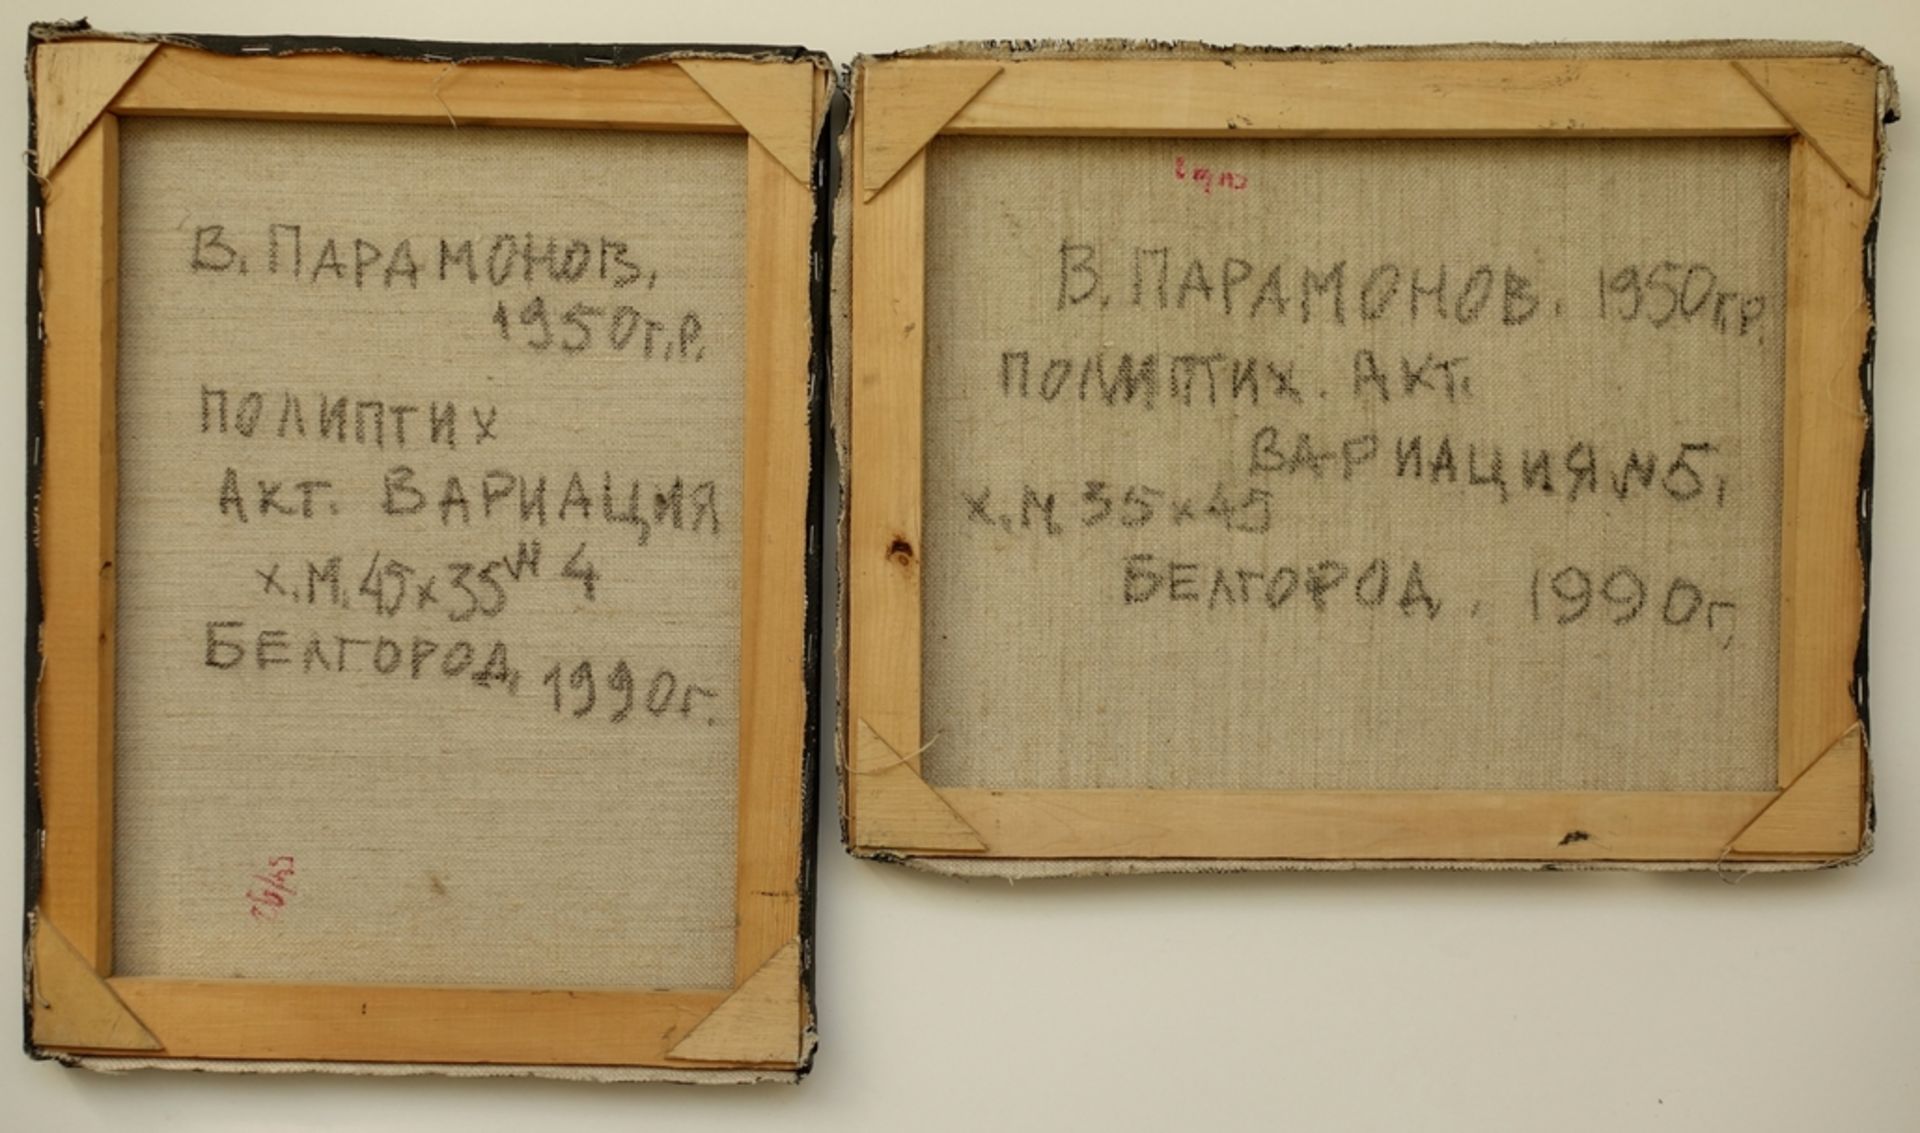 В. ПАРАМОНОВ,
1950г.р.
ПОЛИПТИХ
АКТ. ВАРИАЦИЯ
N 4
х.М. 45х35
БЕЛГОРОД, 1990г.
В. ПАРАМОНОВ. 1950г.р.
ПОЛИПТИХ. АКТ.
ВАРИАЦИЯ N5,
х.М 35х45
БЕЛГОРОД, 1990г.